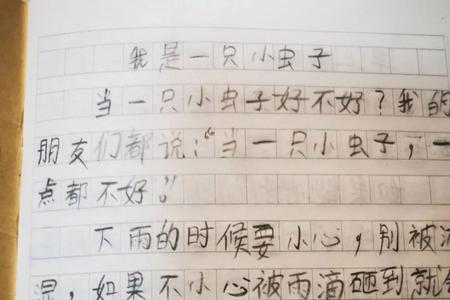 我是一只小虫子
当一只小虫子好不好？我的
朋友们都说：“当一只小虫子，一
点都不好。”
下雨的时候要小心，别被
湿，如果不小心被雨滴砸到就会